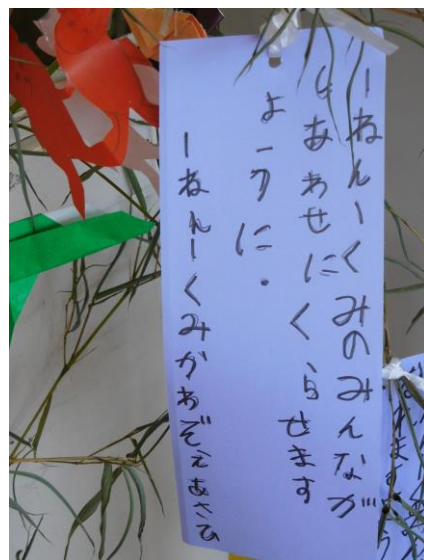 一ねん一くみのみんなが
しあわせにくらせます
ように.
一ねん一くみかわぞえあさひ